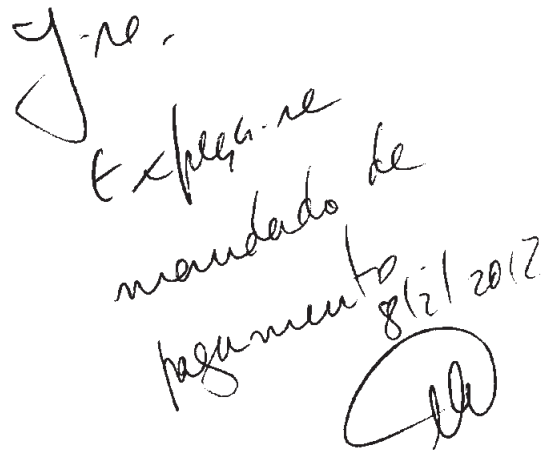 J-se.
Expeça-se
mandado de
pagamento
8/2/2012